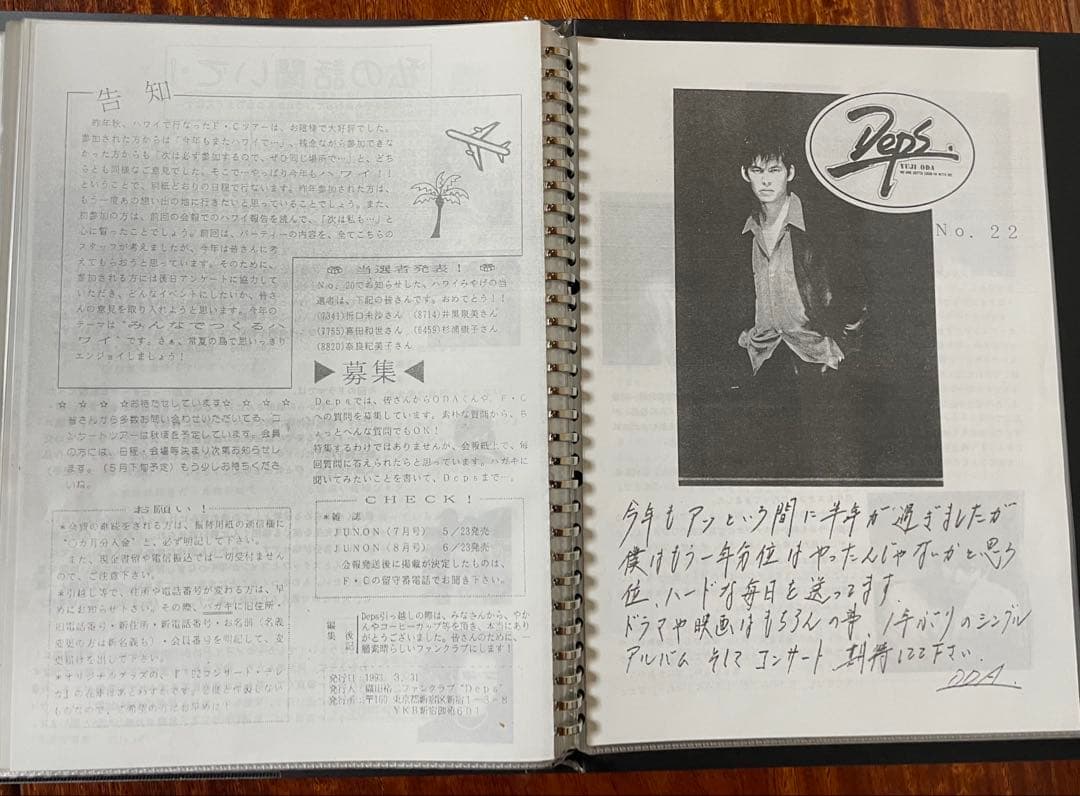 告知
昨年秋、ハワイで行なったF・Cツアーは、お陰様で大好評でした。
参加された方からは「今年もまたハワイで…」、残念ながら参加できな
かった方からも「次は必ず参加するので、ぜひ同じ場所で…」と、どち
らとも同様なご意見でした。そこで…やっぱり今年もハワイ!!
ということで、別紙どおりの日程で行ないます。昨年参加された方は、
もう一度あの想い出の地に行きたいと思っていることでしょう。また、
初参加の方は、前回の会報でのハワイ報告を読んで、「次は私も…」と
心に誓ったことでしょう。前回は、パーティーの内容を、全てこちらの
スタッフが考えましたが、今年は皆さんに考
えてもらおうと思っています。そのために、
参加される方には後日アンケートに協力して
いただき、どんなイベントにしたいか、皆さ
んの意見を取り入れようと思います。今年の
テーマは“みんなでつくるハ
ワイ”です。さぁ、常夏の島で思いっきり
エンジョイしましょう!
☆ ☆ ☆ ☆お待たせしています☆ ☆ ☆ ☆
皆さんから多数お問い合わせいただいてる、コ
ンサートツアーは秋頃を予定しています。会員
の方には、日程・会場等決まり次第お知らせし
ます。(5月下旬予定)もう少しお待ちくださ
いね。
お願い!
*会費の継続をされる方は、振替用紙の通信欄に
“○カ月分入金”と、必ず明記して下さい。
また、現金書留や電信振込では一切受付ません
ので、ご注意下さい。
*引越し等で、住所や電話番号が変わる方は、早
めにお知らせ下さい。その際、ハガキに旧住所・
旧電話番号・新住所・新電話番号・お名前(名義
変更の方は新名義も)・会員番号を明記して、変
更届けを出して下さい。
*オリジナルグッズの、『'92コンサート・テレ
カ』の在庫はあとわずかです。
当選者発表!
No.20でお知らせした、ハワイみやげの当
選者は、下記の皆さんです。おめでとう!!
(7341)折口未沙さん (8714)井黒晄美さん
(7755)喜田和世さん (6459)杉浦樹子さん
(8820)奈良紀美子さん
▶募集◀
Depsでは、皆さんからODAくんや、F・C
への質問を募集しています。素朴な質問から、ち
ょっとへんな質問でもOK!
特集するわけではありませんが、会報紙上で、毎
回質問に答えられたらと思っています。ハガキに
聞いてみたいことを書いて、Depsまで…。
CHECK!
*雑 誌
JUNON(7月号) 5/23発売
JUNON(8月号) 6/23発売
会報発送後に掲載が決定したものは、
F・Cの留守番電話でお聞き下さい。
編集後記
Deps引っ越しの際は、みなさんから、やか
んやコーヒーカップ等を頂き、本当にあり
がとうございました。皆さんのために、一
層素晴らしいファンクラブにします!
発行日 1993.3.31
発行人 織田裕二ファンクラブ“Deps”
発行所 〒160 東京都新宿区新宿1-3-8
YKB新宿御苑601
Deps.
YUJI ODA
No.22
今年もアッという間に半年が過ぎましたが
僕はもう一年分位はやったんじゃないかと思う
位、ハードな毎日を送ってます。
ドラマや映画はもちろんの事、1年ぶりのシングル
アルバム そして コンサート 期待してて下さい.
ODA.